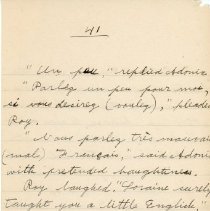 41
"Un peu," replied Adonis
"Parlez un peu pour moi,
si vous desirez (voulez)," pleaded
Roy.
"Vous parlez très mauvais
(mal) Français," said Adonis
with pretended haughtiness.
Roy laughed. "Loraine surely
taught you a little English."